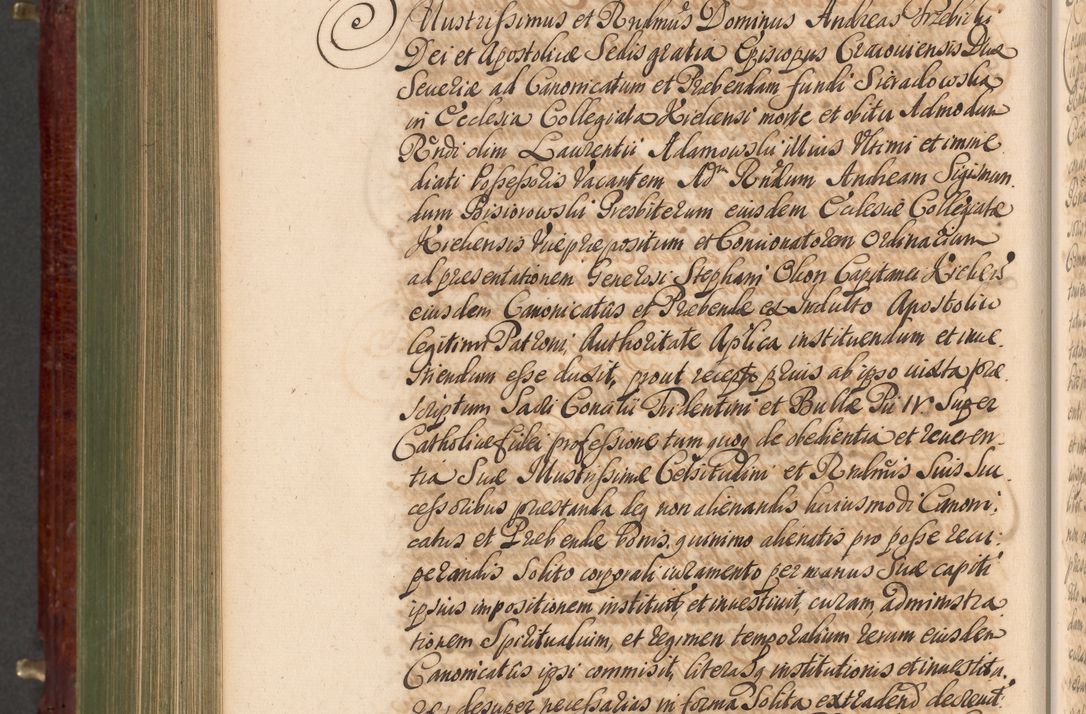 Illustrissimus et Rndmus Dominus Andreas Trzebicki
Dei et Apostolicæ Sedis gratia Episcopus Cracouiensis Dux
Seueriæ ad Canonicatum et Præbendam fundi Sieradowska
in Ecclesia Collegiata Kielcensi morte et obitu Admodum
Rndi olim Laurentii Adamowski illius Vltimi et imme
diati Possessoris Vacantem Adm Rndum Andream Sigismun
dum Bisiorowski Presbiterum eiusdem Ecclesiæ Collegiatæ
Kielcensis Vicepræpositum et Concionatorem Ordinarium
ad presentationem Generosi Stephani Okon Capitanei Kielcen
eiusdem Canonicatus et Præbendæ ex Indulto Apostolico
legitimi Patroni, Authoritate Aplica instituendum et inue
stiendum esse duxit, prout recepto prius ab ipso iuxta præ
scriptum Sacri Concilii Tridentini et Bullæ Pii IV. Super
Catholicæ fidei professione tam quoq de obedientia et reueren
tia Suæ Illustrissimæ Celsitudini et Rndmis Suis Suc
cessoribus præstanda deq non alienandis huiusmodi Canoni
catus et Præbendæ bonis, quinimo alienatis pro posse recu
perandis Solito corporali iuramento per manus Suæ capiti
ipsius impositionem instituit et inuestiuit, curam administra
tionem Spiritualium, et regimen temporalium rerum eiusdem
Canonicatus ipsi commisit, literasq institutionis et inuestitu
ræ desuper necessarias in forma Solita extradend decreuit